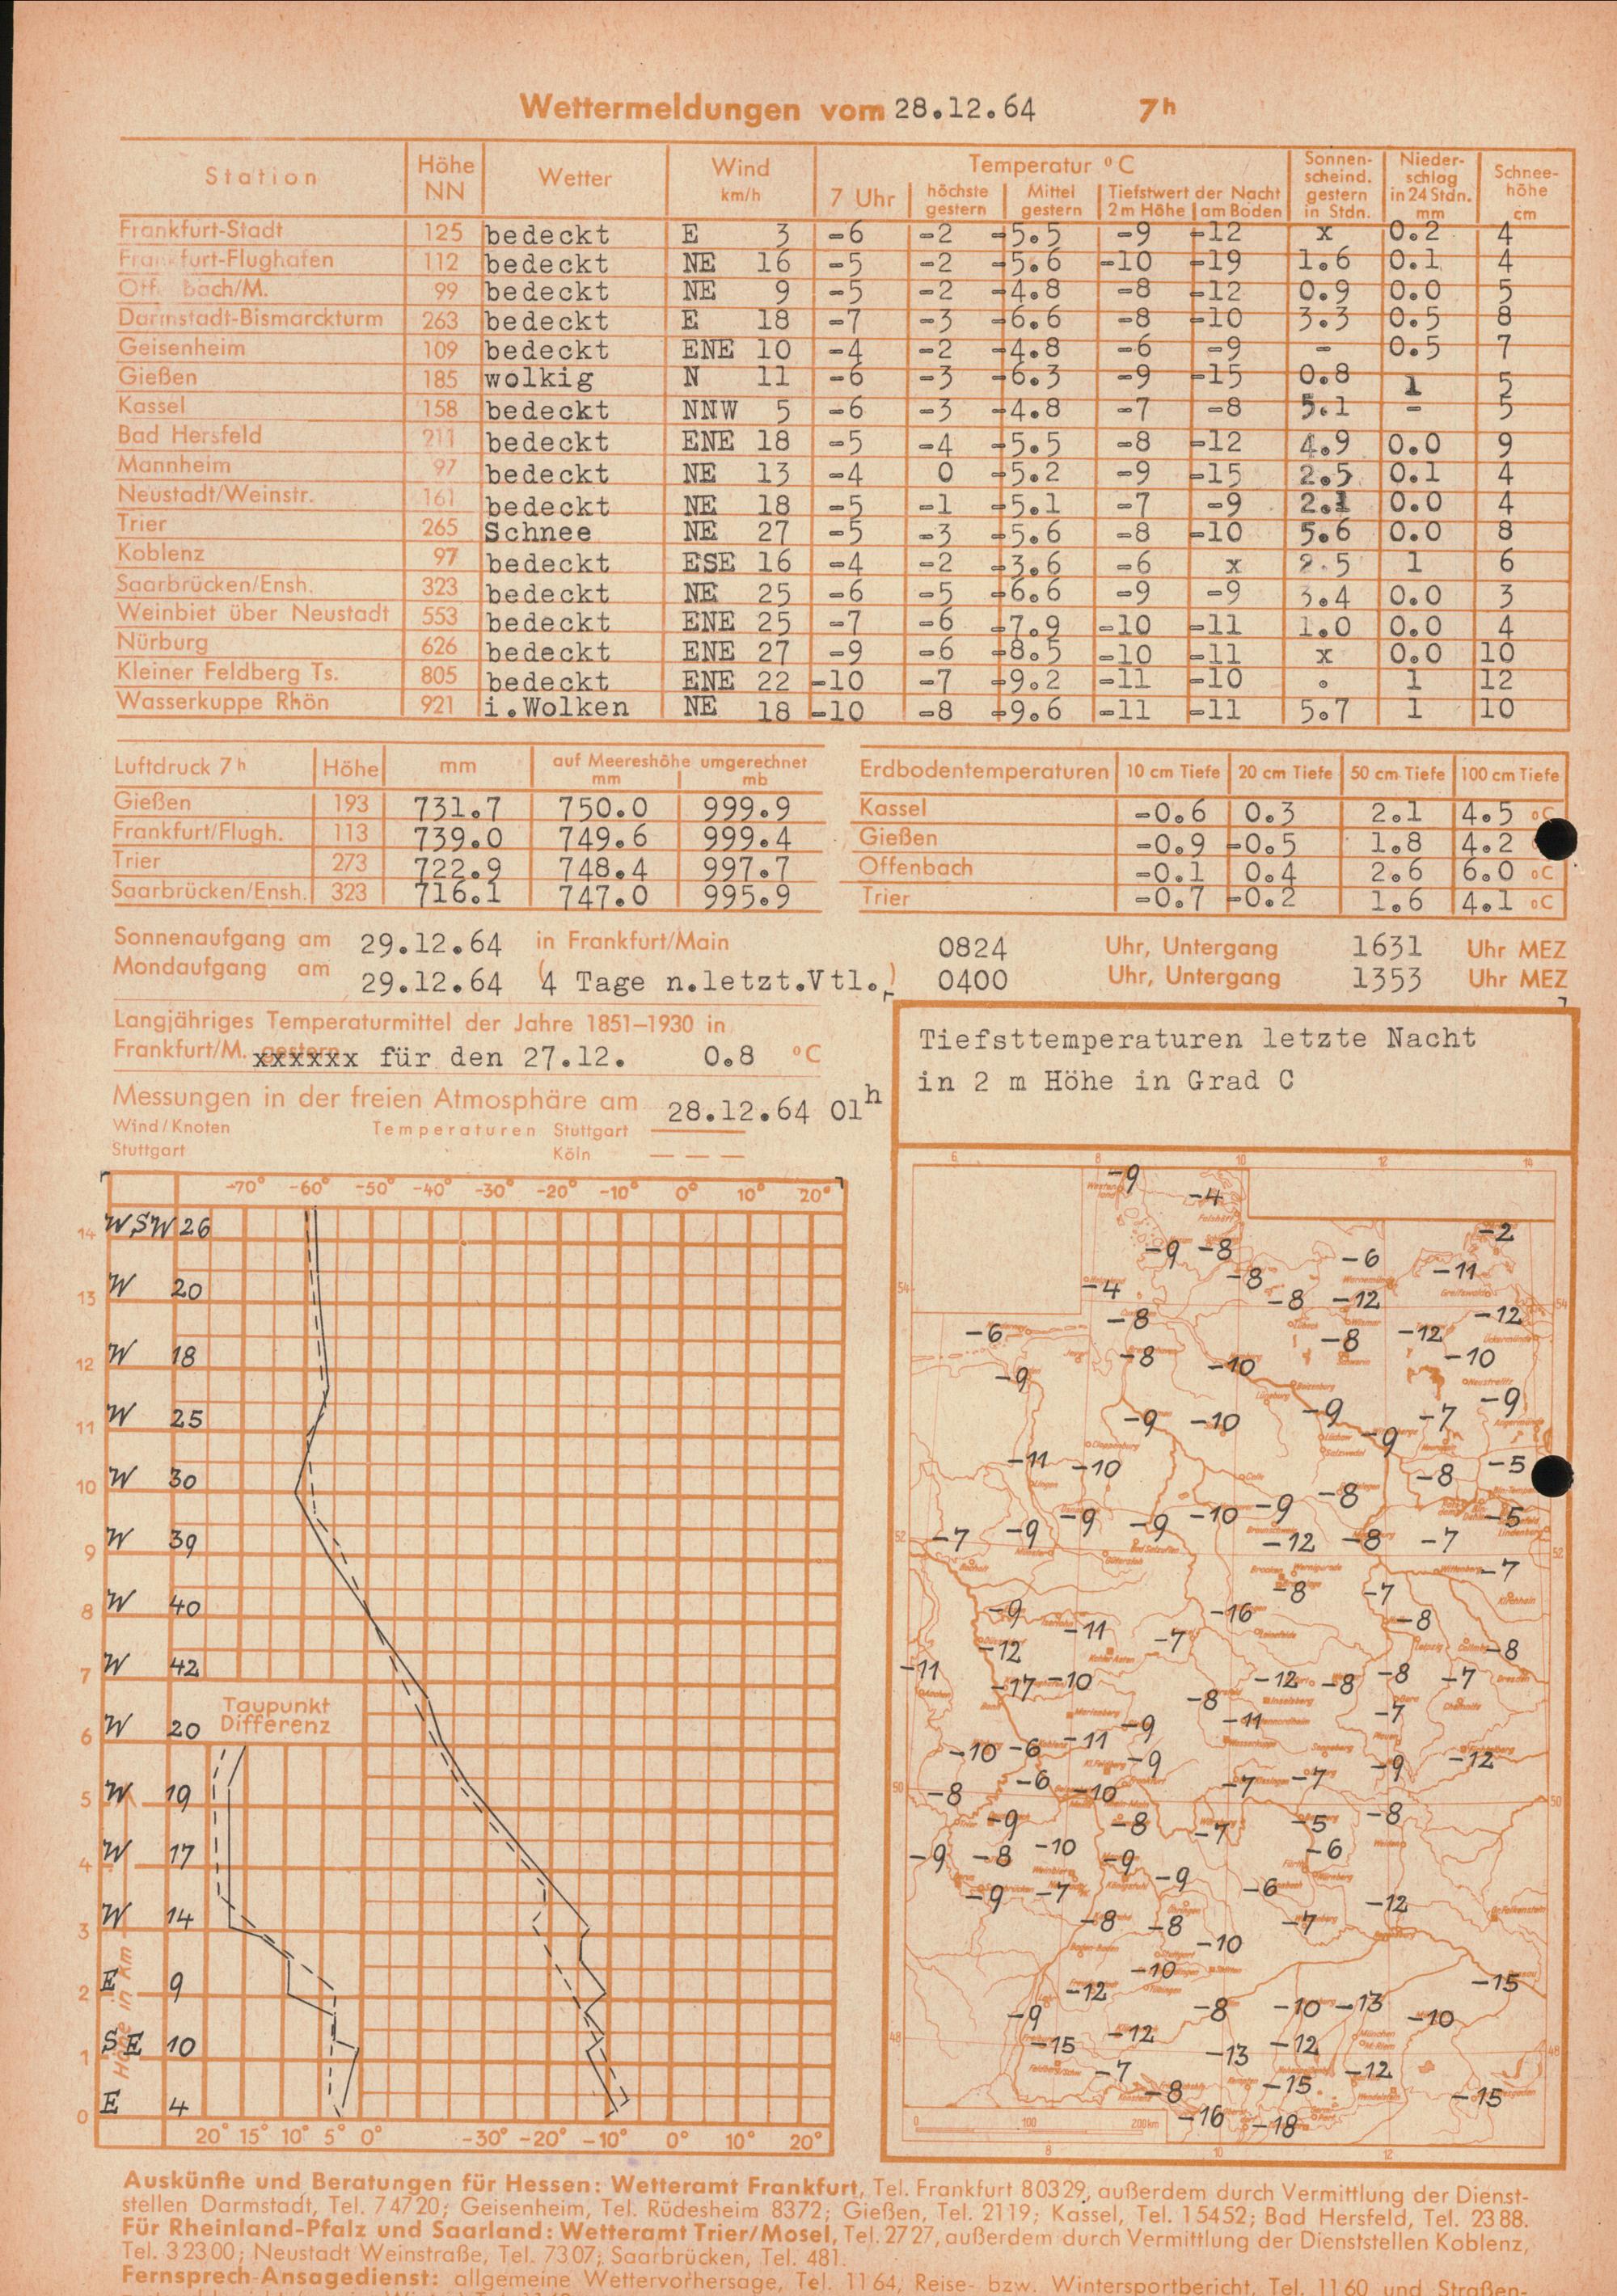 Wettermeldungen vom 28.12.64 7 h
Station Höhe NN Wetter Wind km/h Temperatur °C Sonnenscheind. gestern in Stdn. Niederschlag in 24 Stdn. mm Schneehöhe cm
7 Uhr höchste gestern Mittel gestern Tiefstwert der Nacht 2 m Höhe am Boden
Frankfurt-Stadt 125 bedeckt E 3 -6 -2 -5.5 -9 -12 x 0.2 4
Frankfurt-Flughafen 112 bedeckt NE 16 -5 -2 -5.6 -10 -19 1.6 0.1 4
Off bach/M. 99 bedeckt NE 9 -5 -2 -4.8 -8 -12 0.9 0.0 5
Darmstadt-Bismarckturm 263 bedeckt E 18 -7 -3 -6.6 -8 -10 3.3 0.5 8
Geisenheim 109 bedeckt ENE 10 -4 -2 -4.8 -6 -9 - 0.5 7
Gießen 185 wolkig N 11 -6 -3 -6.3 -9 -15 0.8 1 5
Kassel 158 bedeckt NNW 5 -6 -3 -4.8 -7 -8 5.1 - 5
Bad Hersfeld 211 bedeckt ENE 18 -5 -4 -5.5 -8 -12 4.9 0.0 9
Mannheim 97 bedeckt NE 13 -4 0 -5.2 -9 -15 2.5 0.1 4
Neustadt/Weinstr. 161 bedeckt NE 18 -5 -1 -5.1 -7 -9 2.1 0.0 4
Trier 265 Schnee NE 27 -5 -3 -5.6 -8 -10 5.6 0.0 8
Koblenz 97 bedeckt ESE 16 -4 -2 -3.6 -6 x 2.5 1 6
Saarbrücken/Ensh. 323 bedeckt NE 25 -6 -5 -6.6 -9 -9 3.4 0.0 3
Weinbiet über Neustadt 553 bedeckt ENE 25 -7 -6 -7.9 -10 -11 1.0 0.0 4
Nürburg 626 bedeckt ENE 27 -9 -6 -8.5 -10 -11 x 0.0 10
Kleiner Feldberg Ts. 805 bedeckt ENE 22 -10 -7 -9.2 -11 -10 . 1 12
Wasserkuppe Rhön 921 i.Wolken NE 18 -10 -8 -9.6 -11 -11 5.7 1 10
Luftdruck 7 h Höhe mm auf Meereshöhe umgerechnet mm mb
Gießen 193 731.7 750.0 999.9
Frankfurt/Flugh. 113 739.0 749.6 999.4
Trier 273 722.9 748.4 997.7
Saarbrücken/Ensh. 323 716.1 747.0 995.9
Erdbodentemperaturen 10 cm Tiefe 20 cm Tiefe 50 cm Tiefe 100 cm Tiefe
Kassel -0.6 0.3 2.1 4.5 °C
Gießen -0.9 -0.5 1.8 4.2
Offenbach -0.1 0.4 2.6 6.0 °C
Trier -0.7 -0.2 1.6 4.1 °C
Sonnenaufgang am 29.12.64 in Frankfurt/Main 0824 Uhr, Untergang 1631 Uhr MEZ
Mondaufgang am 29.12.64 (4 Tage n.letzt.Vtl.) 0400 Uhr, Untergang 1353 Uhr MEZ
Langjähriges Temperaturmittel der Jahre 1851–1930 in
Frankfurt/M. gestern xxxxxx für den 27.12. 0.8 °C
Messungen in der freien Atmosphäre am 28.12.64 01h
Wind/Knoten Temperaturen Stuttgart
Stuttgart Köln
-70° -60° -50° -40° -30° -20° -10° 0° 10° 20°
14 WSW 26
13 W 20
12 W 18
11 W 25
10 W 30
9 W 39
8 W 40
7 W 42
Taupunkt
6 W 20 Differenz
5 W 19
4 W 17
3 W 14
2 E 9
1 SE 10
0 E 4
Höhe in km
20° 15° 10° 5° 0° -30° -20° -10° 0° 10° 20°
Tiefsttemperaturen letzte Nacht
in 2 m Höhe in Grad C
6 8 10 12 14
-9
-4
-2
-9 -8 -6
-8 -11
54 -4 54
-8 -12
-8 -12
-6 -8 -12
-8 -10 -10
-9
-9
-9 -10 -9 -7
-9
-11 -10 -8 -5
-9 -8
-9 -9 -10 -5
52 -7 -9 -12 -8 -7 52
-7
-8 -7
-9 -16 -8
-11
-12 -7 -8
-11 -17 -10 -12 -8 -8 -7
-8 -11 -7
-9
-10 -6 -11 -9 -9 -12
-6 -7 -7
50 -8 -10 50
-9 -8 -7 -5 -8
-9 -8 -10 -9 -6
-9 -7 -9 -6
-12
-8 -8 -7
-10
-10 -15
-12
-9 -8 -10 -13 -10
48 -15 -12 -12 48
-13
-7 -12
-8 -15 -15
-16 -18
0 100 200km
8 10 12
Auskünfte und Beratungen für Hessen: Wetteramt Frankfurt, Tel. Frankfurt 80329, außerdem durch Vermittlung der Dienst-
stellen Darmstadt, Tel. 74720; Geisenheim, Tel. Rüdesheim 8372; Gießen, Tel. 2119; Kassel, Tel. 15452; Bad Hersfeld, Tel. 2388.
Für Rheinland-Pfalz und Saarland: Wetteramt Trier/Mosel, Tel. 2727, außerdem durch Vermittlung der Dienststellen Koblenz,
Tel. 32300; Neustadt Weinstraße, Tel. 7307; Saarbrücken, Tel. 481.
Fernsprech-Ansagedienst: allgemeine Wettervorhersage, Tel. 1164, Reise- bzw. Wintersportbericht, Tel. 1160 und Straßen-